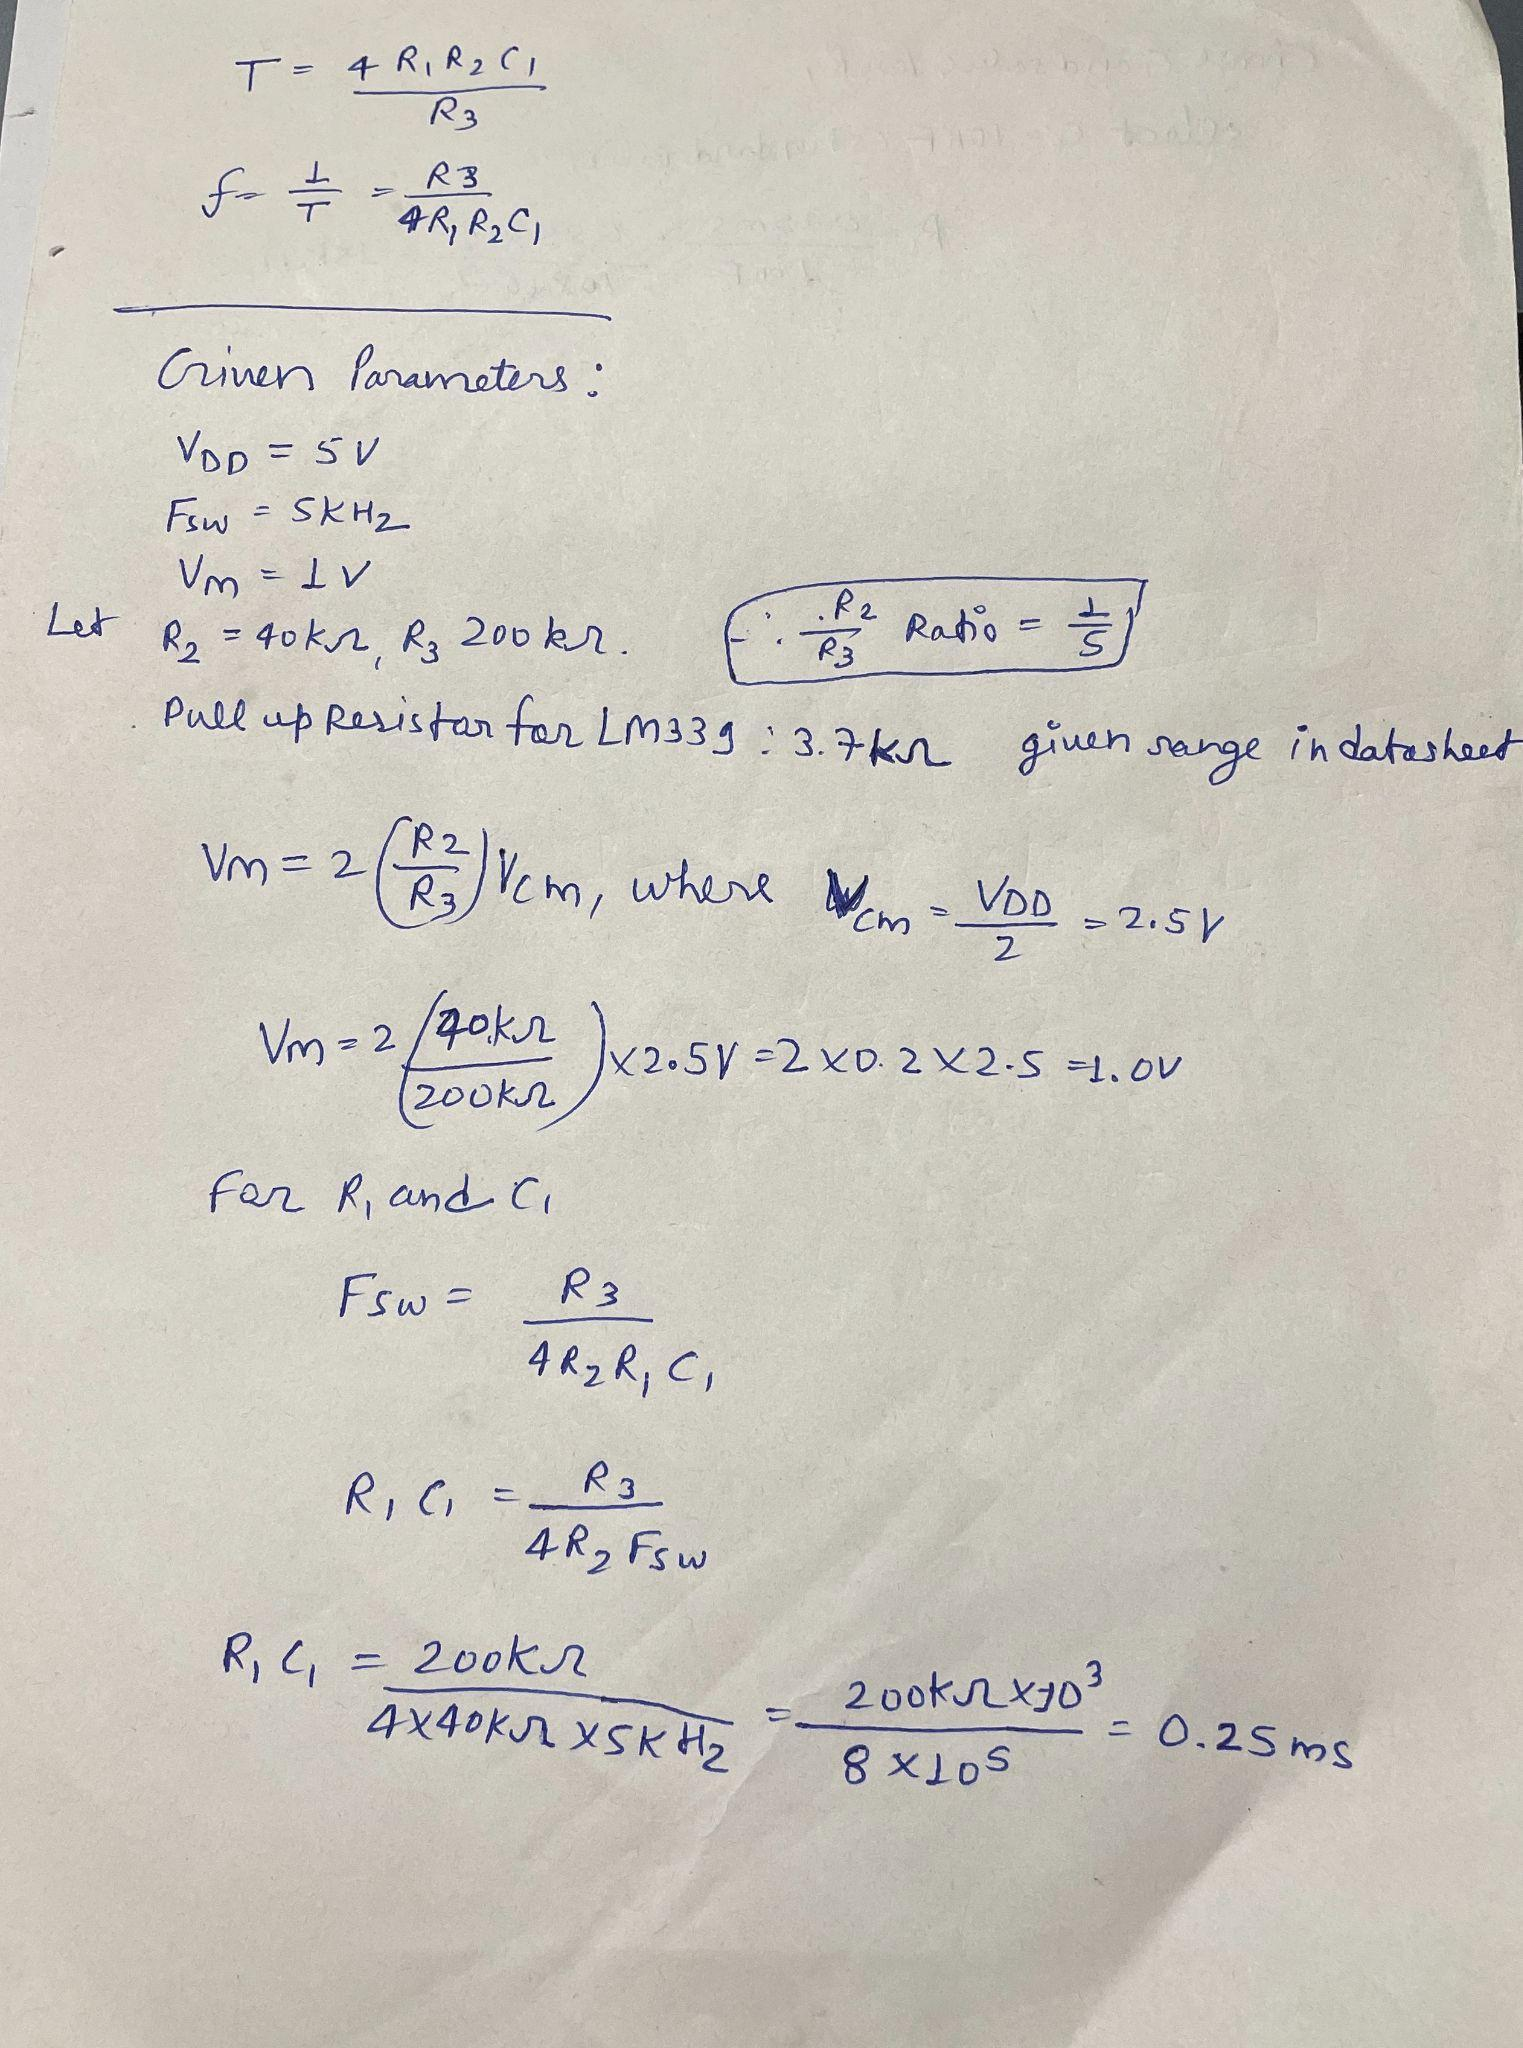 T = 4 R₁ R₂ C₁ / R₃
f = 1/T = R3 / 4R₁ R₂ C₁
Given Parameters :
VDD = 5 V
Fsw = 5KHz
Vm = 1 V
Let R₂ = 40kΩ, R₃ 200 kΩ. ∴ R₂/R₃ Ratio = 1/5
Pull up Resistor for LM339 : 3.7kΩ given range in datasheet
Vm = 2 (R2/R3) Vcm, where Vcm = VDD/2 = 2.5V
Vm = 2 (40kΩ/200kΩ) × 2.5V = 2 × 0.2 × 2.5 = 1.0V
For R₁ and C₁
Fsw = R3 / 4 R₂ R₁ C₁
R₁ C₁ = R3 / 4R₂ Fsw
R₁ C₁ = 200kΩ / 4×40kΩ ×5KHz = 200kΩ ×10³ / 8 ×10⁵ = 0.25 ms